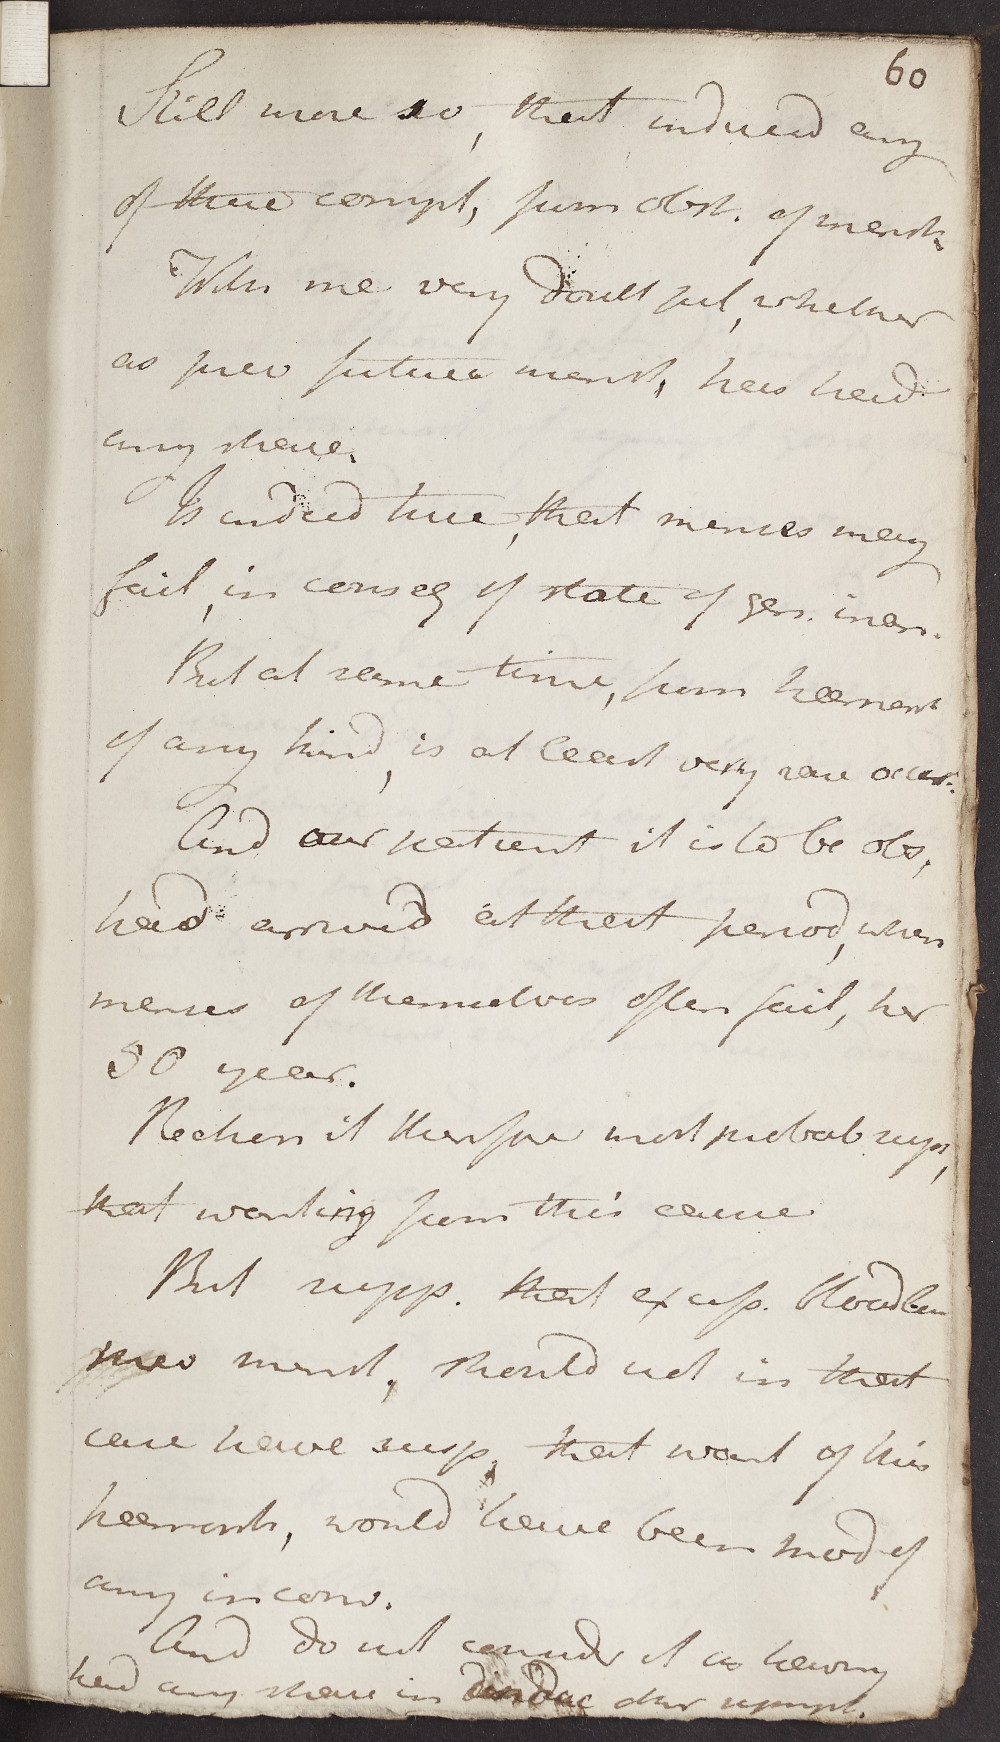 60
Still more so, that induced any
of these compl, from obst. of menst.
With me very doubtful, whether
as prev future menst, has had
any share.
Is indeed true, that menses may
fail, in conseq of state of gen. inan.
But at same time, from haemorh
of any kind, is at least very rare occur.
And our patient it is to be obs,
had arrived at that period, when
menses of themselves often fail, her
50 year.
Reckon it therefore most probab supp,
that wanting from this cause
But supp. that excess. bloodlet
prev menst, should not in that
case have susp, that want of this
haemorh, would have been prod of
any inconv.
And do not consider it as having
had any share in other sympt.